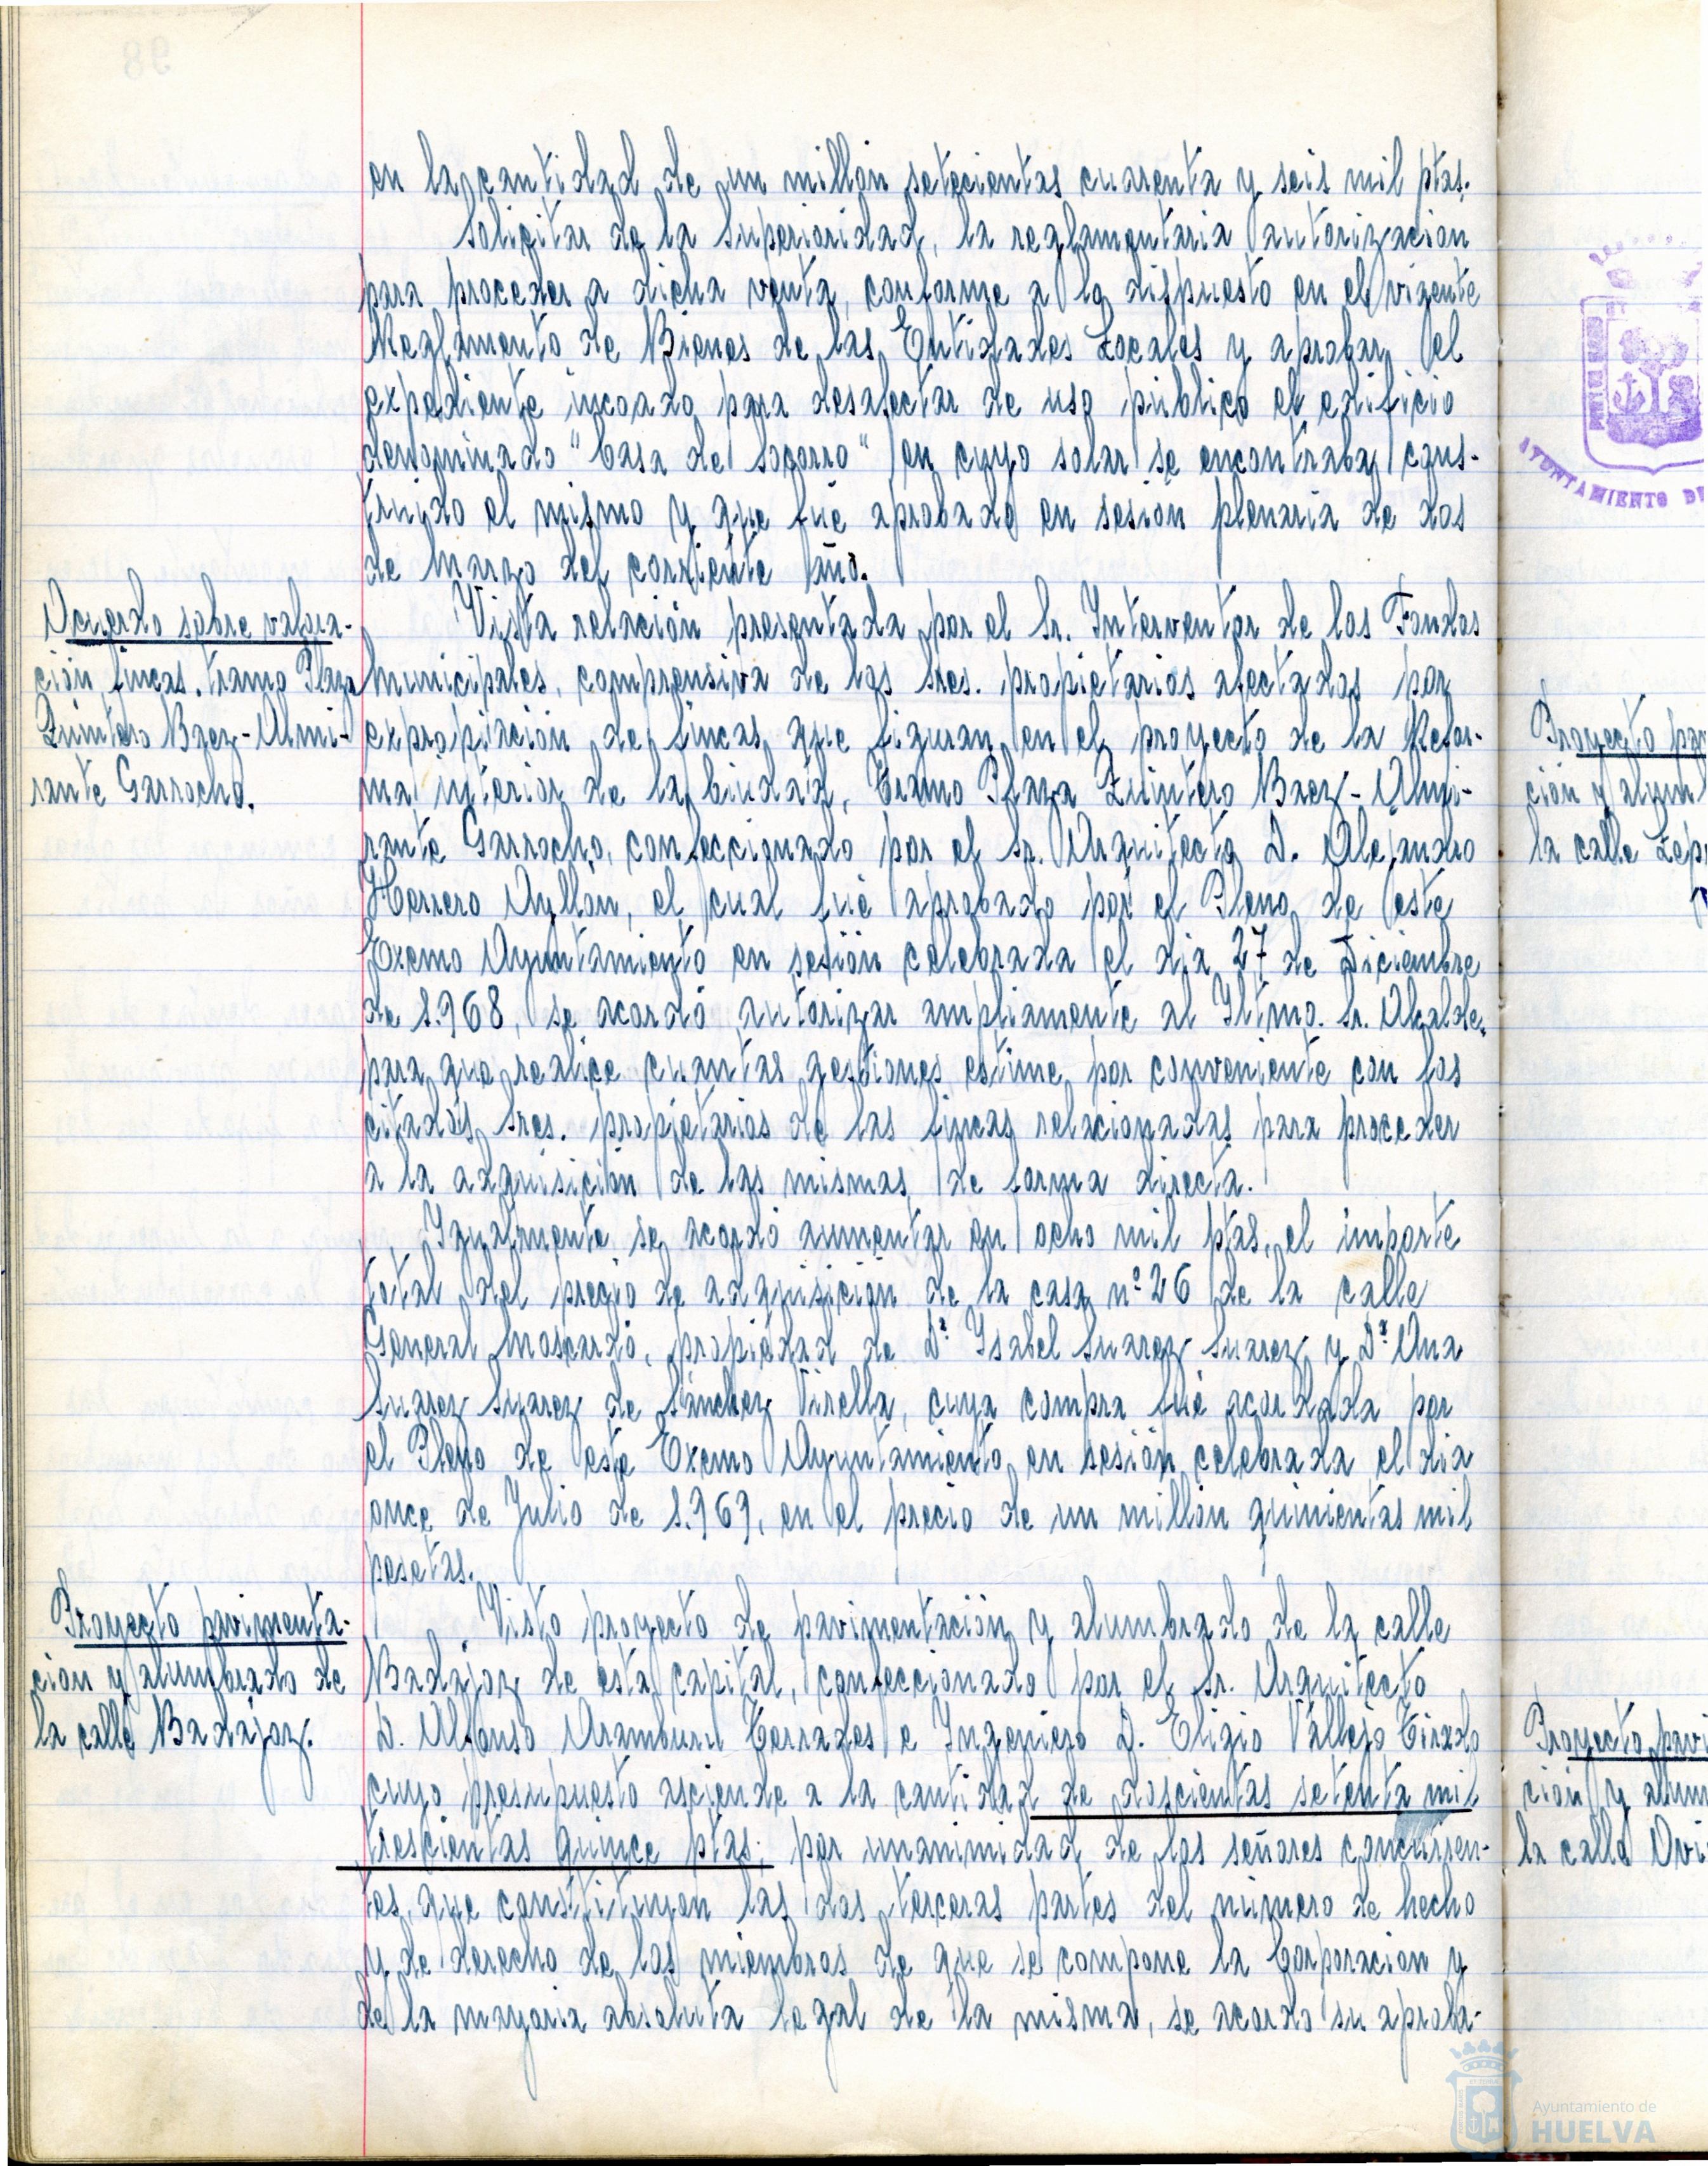 en la cantidad de un millón setecientas cuarenta y seis mil ptas.
Solicitar de la Superioridad, la reglamentaria autorización
para proceder a dicha venta, conforme a lo dispuesto en el vigente
Reglamento de Bienes de las Entidades Locales y aprobar el
expediente incoado para desafectar de uso público el edificio
denominado "Casa de Socorro" en cuyo solar se encontraba cons-
truido el mismo y que fué aprobado en sesión plenaria de dos
de Marzo del corriente año.
Acuerdo sobre valua-
ción fincas. tramo Plaza
Quintero Baez-Almi-
rante Garrocho.
Vista relación presentada por el Sr. Interventor de los Fondos
Municipales, comprensiva de los Sres. propietarios afectados por
expropiación de fincas que figuran en el proyecto de la Refor-
ma interior de la Ciudad, Tramo Plaza Quintero Baez-Almi-
rante Garrocho, confeccionado por el Sr. Arquitecto D. Alejandro
Herrero Ayllón, el cual fué aprobado por el Pleno de este
Excmo Ayuntamiento en sesión celebrada el dia 27 de Diciembre
de 1.968, se acordó autorizar ampliamente al Iltmo. Sr. Alcalde,
para que realice cuantas gestiones estime por conveniente con los
citados Sres. propietarios de las fincas relacionadas para proceder
a la adquisición de las mismas de forma directa.
Igualmente se acordó aumentar en ocho mil ptas, el importe
total del precio de adquisición de la casa nº 26 de la calle
General Moscardó, propiedad de Dª Isabel Suarez Suarez y Dª Ana
Suarez Suarez de Sánchez Virella, cuya compra fué acordada por
el Pleno de este Excmo Ayuntamiento en sesión celebrada el dia
once de Julio de 1.969, en el precio de un millón quinientas mil
pesetas.
Proyecto pavimenta-
ción y alumbrado de
la calle Badajoz.
Visto proyecto de pavimentación y alumbrado de la calle
Badajoz de esta capital, confeccionado por el Sr. Arquitecto
D. Alfonso Aramburu Terrades e Ingeniero D. Eligio Vallejo Tirado
cuyo presupuesto asciende a la cantidad de doscientas setenta mil
trescientas quince ptas; por unanimidad de los señores concurren-
tes, que constituyen las dos terceras partes del número de hecho
y de derecho de los miembros de que se compone la Corporación y
de la mayoria absoluta legal de la misma, se acordó su aproba-
AYUNTAMIENTO DE
Proyecto pa
ción y alum
la calle Lep
Proyecto pavi
ción y alum
la calle Ovi
Ayuntamiento de
HUELVA